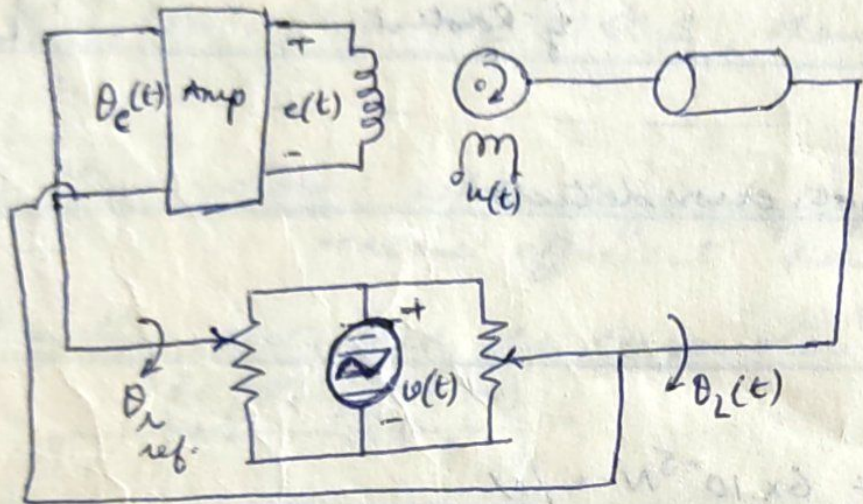 θe(t) Amp
+
e(t)
-
u(t)
+
v(t)
-
θr
ref.
θL(t)